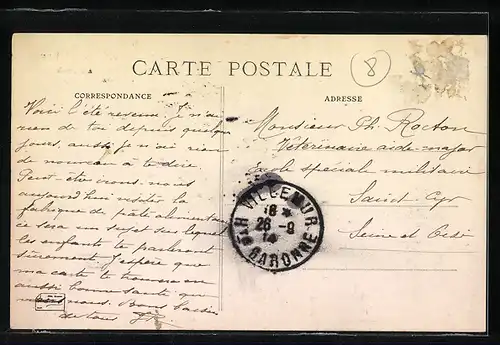 CARTE POSTALE
8
CORRESPONDANCE
ADRESSE
Voici l'été revenu. Je n'ai
rien de toi depuis quelques
jours, aussi je n'ai rien
de nouveau à te dire
Peut être irons-nous
aujourd'hui visiter la
fabrique de pâte alimentaire
ce sera un sujet sur lequel
les enfants te parleront
sûrement. J'espère que
ma carte te trouvera en
aussi bonne santé que
nous. Bons baisers
de tous
Monsieur Ph. Rocton
Vétérinaire aide-major
Ecole spéciale militaire
Saint-Cyr
Seine et Oise
VILLEMUR
18 *
26 - 9
14
HTE GARONNE